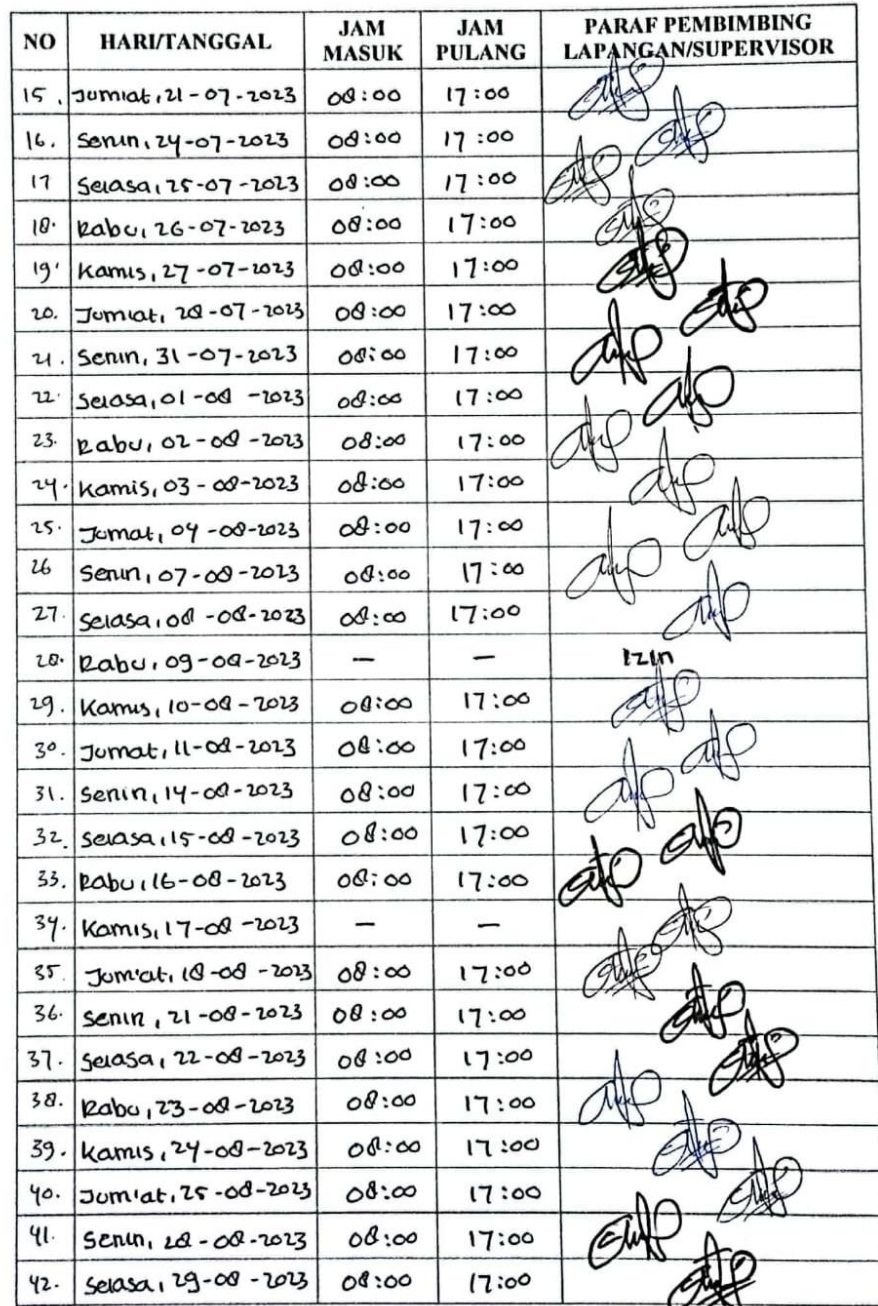 NO HARI/TANGGAL JAM MASUK JAM PULANG PARAF PEMBIMBING LAPANGAN/SUPERVISOR
15. Jum'at, 21-07-2023 08:00 17:00
16. Senin, 24-07-2023 08:00 17:00
17 Selasa, 25-07-2023 08:00 17:00
18. Rabu, 26-07-2023 08:00 17:00
19. Kamis, 27-07-2023 08:00 17:00
20. Jum'at, 28-07-2023 08:00 17:00
21. Senin, 31-07-2023 08:00 17:00
22. Selasa, 01-08-2023 08:00 17:00
23. Rabu, 02-08-2023 08:00 17:00
24. Kamis, 03-08-2023 08:00 17:00
25. Jumat, 04-08-2023 08:00 17:00
26 Senin, 07-08-2023 08:00 17:00
27. Selasa, 08-08-2023 08:00 17:00
28. Rabu, 09-08-2023 — — IZIN
29. Kamis, 10-08-2023 08:00 17:00
30. Jumat, 11-08-2023 08:00 17:00
31. Senin, 14-08-2023 08:00 17:00
32. Selasa, 15-08-2023 08:00 17:00
33. Rabu, 16-08-2023 08:00 17:00
34. Kamis, 17-08-2023 — —
35. Jum'at, 18-08-2023 08:00 17:00
36. Senin, 21-08-2023 08:00 17:00
37. Selasa, 22-08-2023 08:00 17:00
38. Rabu, 23-08-2023 08:00 17:00
39. Kamis, 24-08-2023 08:00 17:00
40. Jum'at, 25-08-2023 08:00 17:00
41. Senin, 28-08-2023 08:00 17:00
42. Selasa, 29-08-2023 08:00 17:00